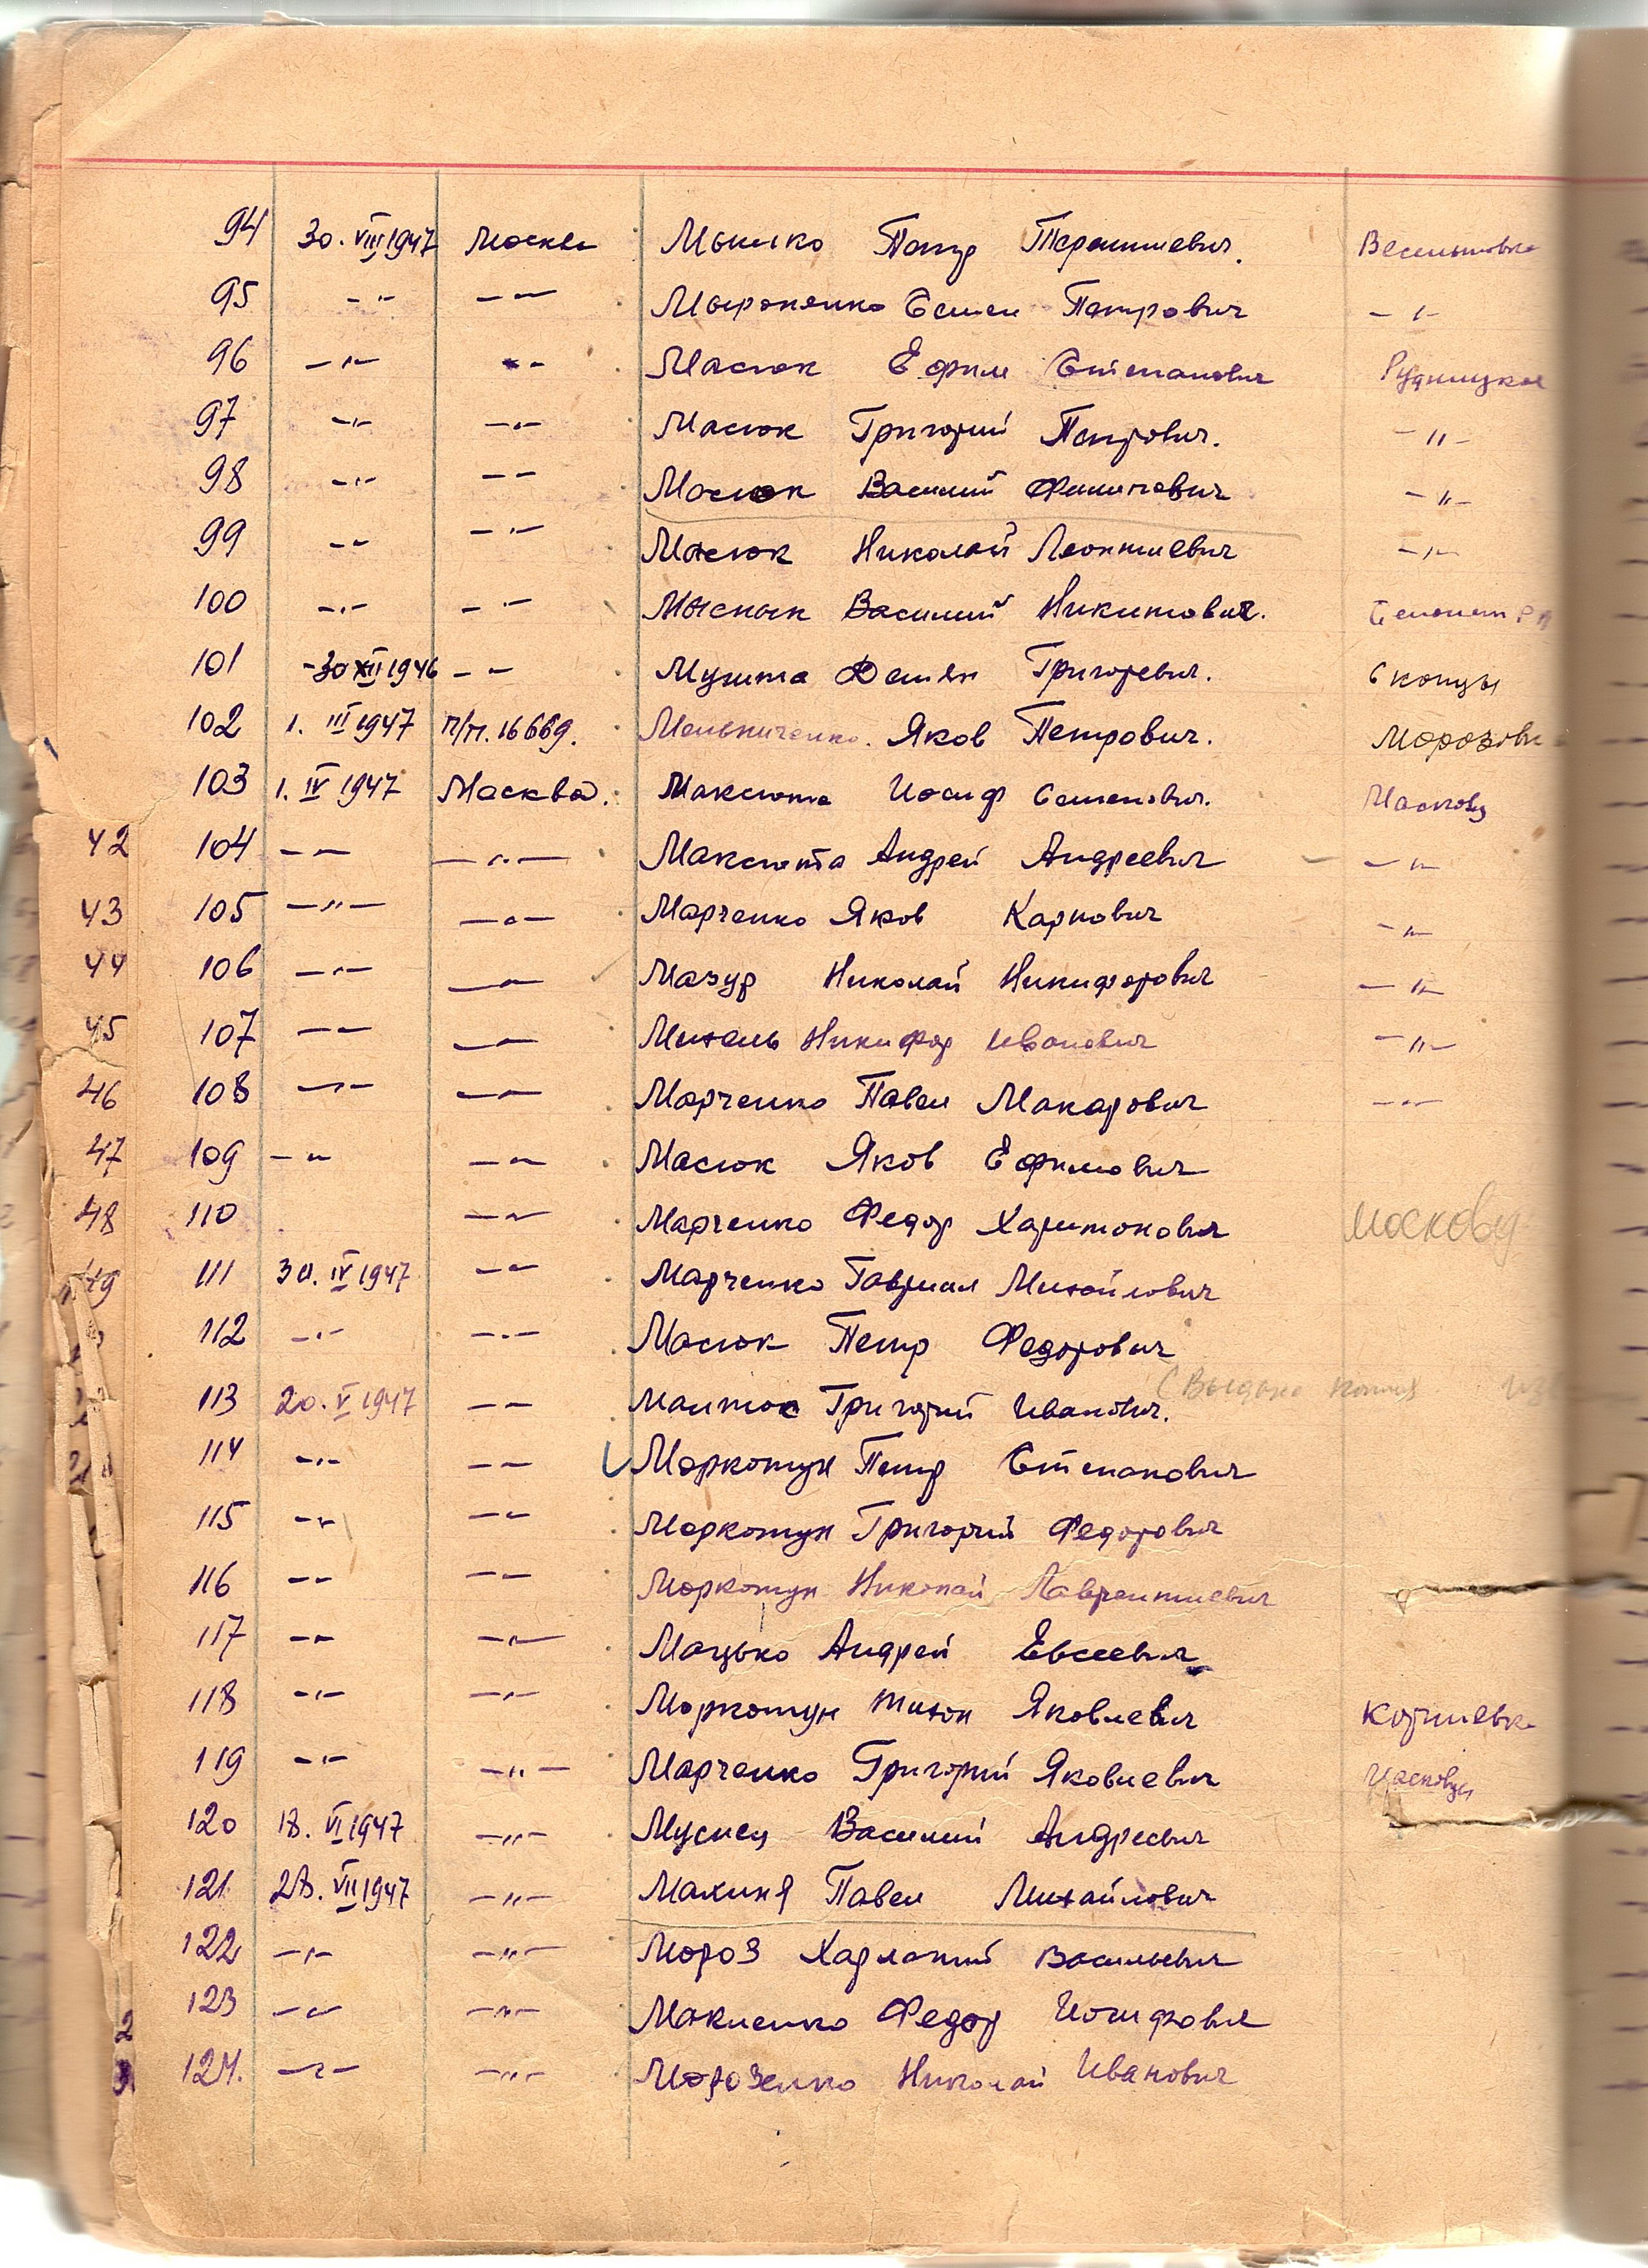 94 30.VIII 1947 Москва Мышко Петр Терентиевич.
95 -"- -"- Мыроненко Семен Петрович -"-
96 -"- -"- Масюк Ефим Степанович Рудницкое
97 -"- -"- Масюк Григорий Петрович. -"-
98 -"- -"- Масюк Василий Филипович -"-
99 -"- -"- Масюк Николай Леонтиевич -"-
100 -"- -"- Василий Никитович.
101 -30 XII 1946 -"- Мушта Демян Григоревич. Скопцы
102 1. III 1947 п/п. 16669. Мельниченко. Яков Петрович. Морозовк
103 1. IV 1947 Масква. Максюта Иосиф Семенович.
42 104 -"- -"- Максюта Андрей Андреевич -"-
43 105 -"- -"- Марченко Яков Карпович -"-
44 106 -"- -"- Мазур Николай Никифорович -"-
45 107 -"- -"- Михель Никифор Иванович -"-
46 108 -"- -"- Марченко Павел Макарович -"-
47 109 -"- -"- Масюк Яков Ефимович
48 110 -"- Марченко Федор Харитонович
49 111 30. IV 1947 -"- Марченко Гавриил Михайлович
112 -"- -"- Масюк Петр Федорович
(Выдана копия из
113 20. V 1947 -"- Григорий Иванович.
114 -"- -"- Моркотун Петр Степанович
115 -"- -"- Моркотун Григорий Федорович
116 -"- -"- Моркотун Николай Лаврентиевич
117 -"- -"- Мацько Андрей Евсеевич
118 -"- -"- Моркотун Тихон Яковлевич
119 -"- -"- Марченко Григорий Яковлевич
120 18. VI 1947 -"- Мусиец Василий Андреевич
121 28. VII 1947 -"- Махиня Павел Михайлович
122 -"- -"- Мороз Харлапий Васильевич
123 -"- -"- Макиенко Федор Иосифович
124. -"- -"- Морозенко Николай Иванович